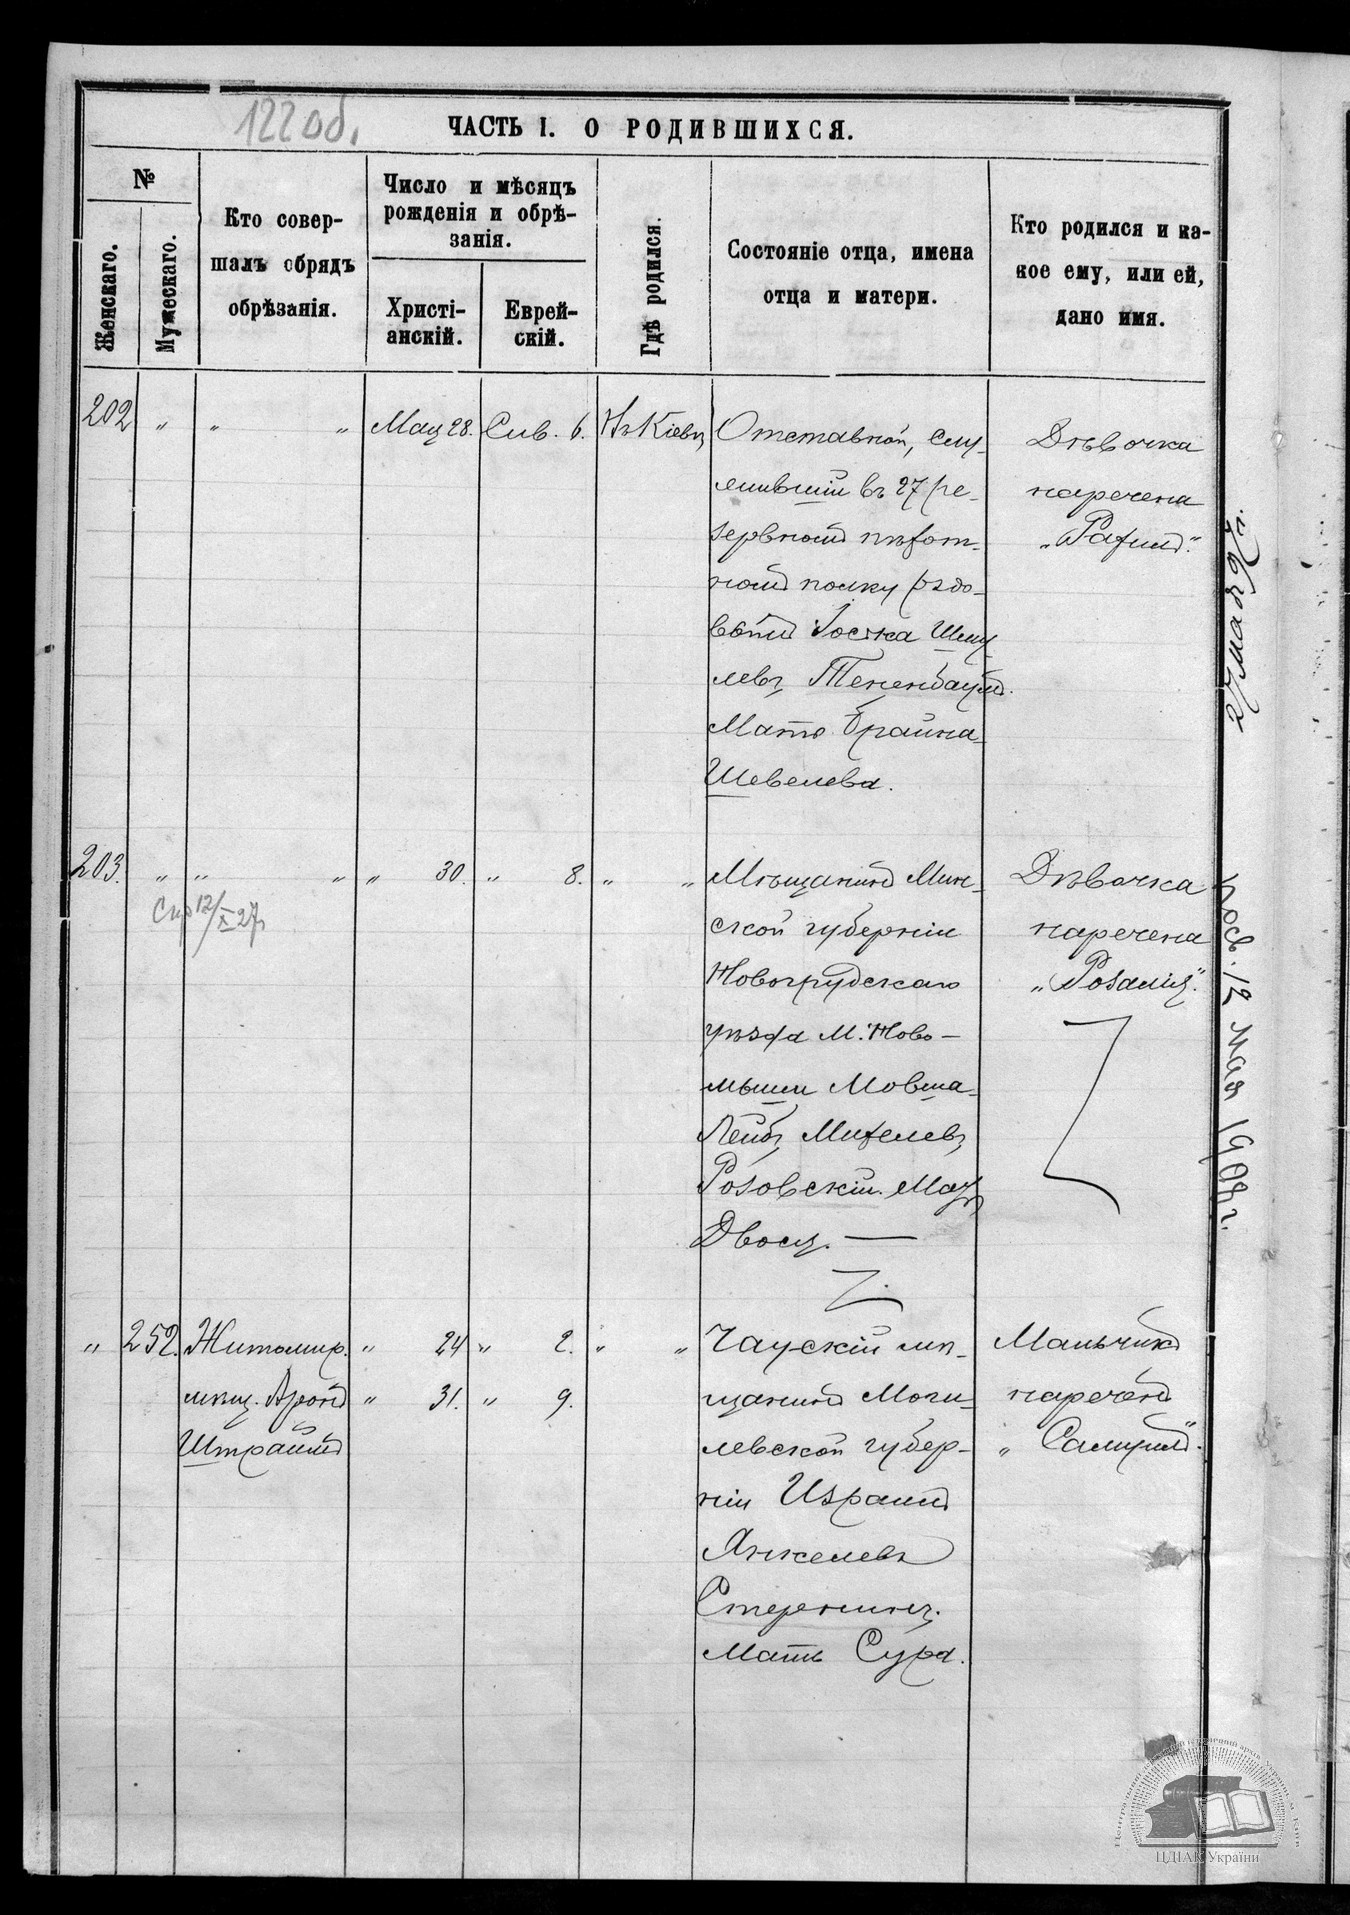 122 об.
ЧАСТЬ I. О РОДИВШИХСЯ.
№
Женскаго.
Мужескаго.
Кто совер-
шалъ обрядъ
обрѣзанія.
Число и мѣсяцъ
рожденія и обрѣ-
занія.
Христі-
анскій.
Еврей-
скій.
Гдѣ родился.
Состояніе отца, имена
отца и матери.
Кто родился и ка-
кое ему, или ей,
дано имя.
202 " " " Мая 28. Сив. 6. Въ Кіевѣ
Отставной, слу-
жившій въ 27 ре-
зервномъ пѣхот-
номъ полку рядо-
вымъ Іоська Шму-
левъ Тененбаумъ.
Мать Брайна-
Шевелева.
Дѣвочка
наречена
"Рахиль".
203. " " " " 30. " 8. " "
Мѣщанинъ Мин-
ской губерніи
Новогрудскаго
уѣзда М. Ново-
мыши Мовша-
Лейбъ Михелевъ
Розовскій. Мать
Двося.
Дѣвочка
наречена
"Розалія".
12/X 27
" 252. Житомир. " 24 " 2. " "
мѣщ. Аронъ " 31. " 9.
Штраймъ
Чаускій мѣ-
щанинъ Моги-
левской губер-
ніи Израиль
Янкелевъ
Стеренинъ.
Мать Сура.
Мальчикъ
нареченъ
"Самуилъ".
27 мая 97 г.
12 мая 1908 г.
ЦДІАК України